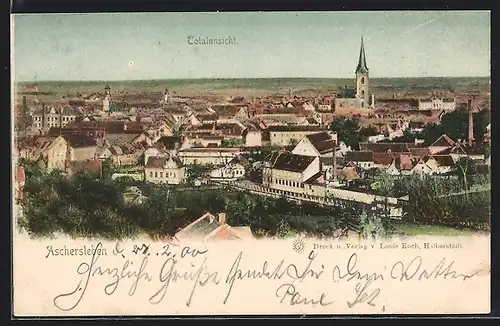 Totalansicht.
Aschersleben d. 27. 2. 00
Druck u. Verlag v. Louis Koch, Halberstadt.
Herzliche Grüße sendet Dir u. Deiner Mutter
Paul